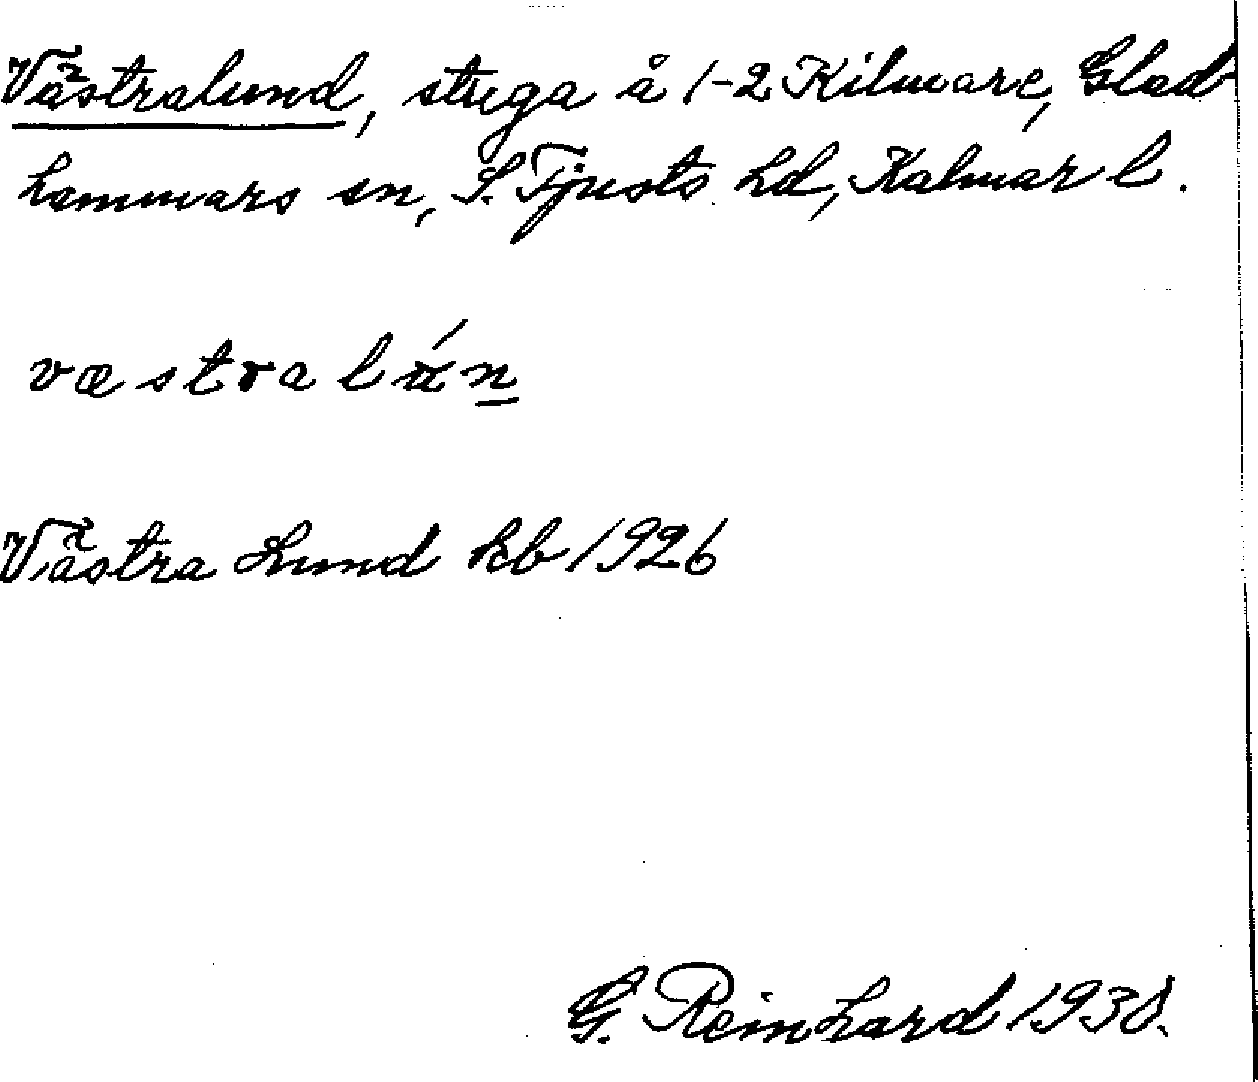 Västralund, stuga å 1-2 Kilmare, Glad-
hammars sn, S. Tjusts hd, Kalmar l.
væstralán
Västra Lund kb 1926
G. Reinhard 1938.